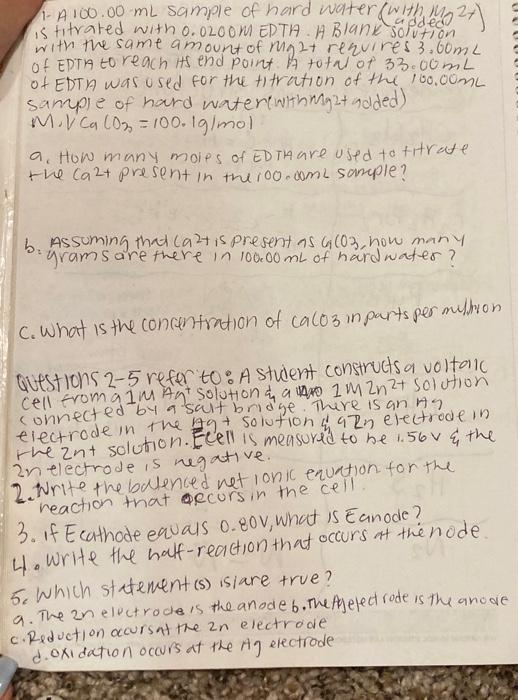 1- A 100.00 mL sample of hard water (with Mg2+ added)
is titrated with 0.0200M EDTA. A Blank solution
with the same amount of Mg2+ requires 3.60mL
of EDTA to reach its end point. A total of 33.00mL
of EDTA was used for the titration of the 100.00mL
sample of hard water (with Mg2+ added)
M.V CaCO3 = 100.1g/mol
a. How many moles of EDTA are used to titrate
the Ca2+ present in the 100.00mL sample?
b. Assuming that Ca2+ is present as CaCO3, how many
grams are there in 100.00 mL of hard water?
c. What is the concentration of CaCO3 in parts per million
Questions 2-5 refer to: A student constructs a voltaic
cell from a 1M Ag+ solution & a 1M Zn2+ solution
connected by a salt bridge. There is an Ag
electrode in the Ag+ solution & a Zn electrode in
the Znt solution. Ecell is measured to be 1.56V & the
Zn electrode is negative.
2. Write the balenced net ionic equation for the
reaction that occurs in the cell.
3. if Ecathode equals 0.80V, What is Eanode?
4. Write the half-reaction that occurs at the node.
5. Which statement(s) is/are true?
a. The Zn electrode is the anode b. The Ag electrode is the anode
c. Reduction occurs at the Zn electrode
d. oxidation occurs at the Ag electrode